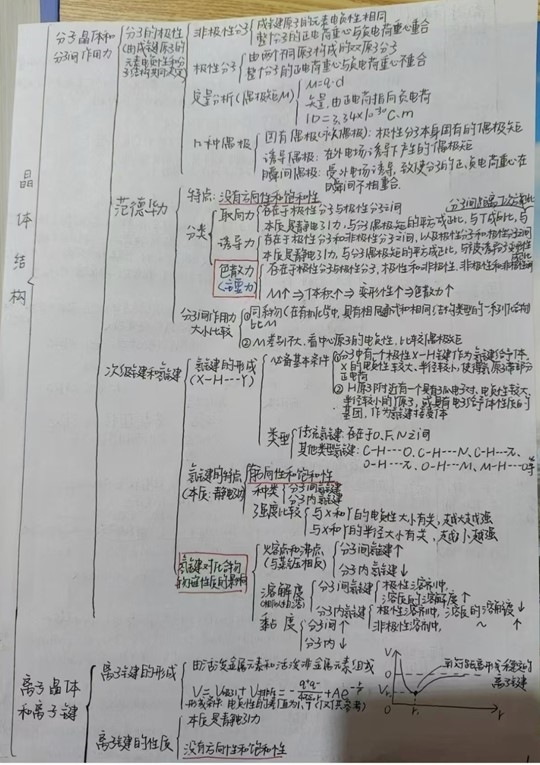 晶体结构
分子晶体和
分子间作用力
分子的极性
(由成键原子的
元素电负性和分
子结构共同决定)
非极性分子
成键原子的元素电负性相同
整个分子的正电荷重心与负电荷重心重合
极性分子
由两个不同原子构成的双原子分子
整个分子的正电荷重心与负电荷重心不重合
定量分析(偶极矩M)
M=q·d
矢量,由正电荷指向负电荷
1D=3.34×10⁻³⁰C.m
几种偶极
固有偶极(永久偶极):极性分子本身固有的偶极矩
诱导偶极:在外电场诱导下产生的偶极矩
瞬间偶极:受外电场诱导,致使分子的正,负电荷重心在
瞬间不相重合.
范德华力
特点:没有方向性和饱和性
分类
取向力
存在于极性分子与极性分子间
本质是静电引力,与分子偶极矩的平方成正比,与T成反比,与
诱导力
存在于极性分子和非极性分子之间,以及极性分子和极性分子间
本质是静电引力,与分子偶极矩的平方成正比,与被诱导分子
色散力
存在于极性分子与极性分子,极性和非极性,非极性和非极性间
M↑⇒体积↑⇒变形性↑⇒色散力↑
分子间作用力
大小比较
②M差别不大,看中心原子的电负性,比较偶极矩
次级键和氢键
氢键的形成
(X—H---Y)
必备基本条件
①分子中有一个极性X-H键作为氢键给予体.
X的电负性较大、半径较小,使得氢原子带部分
正电荷
②H原子附近有一个具有孤电子对、电负性较大、
半径较小的Y原子,或具有电子给予体性质的
基团,作为氢键接受体
类型
传统氢键:存在于O、F、N之间
其他类型氢键:C-H---O、C-H---N、C-H---π、
O-H---π、O-H---M、M-H---O等
氢键的特点
(本质:静电引力)
有方向性和饱和性
种类
分子间氢键
分子内氢键
强度比较
与X和Y的电负性大小有关,越大越强
与X和Y的半径大小有关,越小越强
氢键对化合物
的理性质的影响
火容点和沸点
(与蒸气压相反)
分子间氢键↑
分子内氢键↓
溶解度
(相似相溶)
分子间氢键
极性溶剂中,
溶质的溶解度↑
分子内氢键
极性溶剂中,溶质的溶解度↓
非极性溶剂中, ~ ↑
黏度
分子间↑
分子内↓
离子晶体
和离子键
离子键的形成
由活泼金属元素和活泼非金属元素组成
V
V₀
0
r₀
r
离子键
离子键的性质
本质是静电引力
没有方向性和饱和性